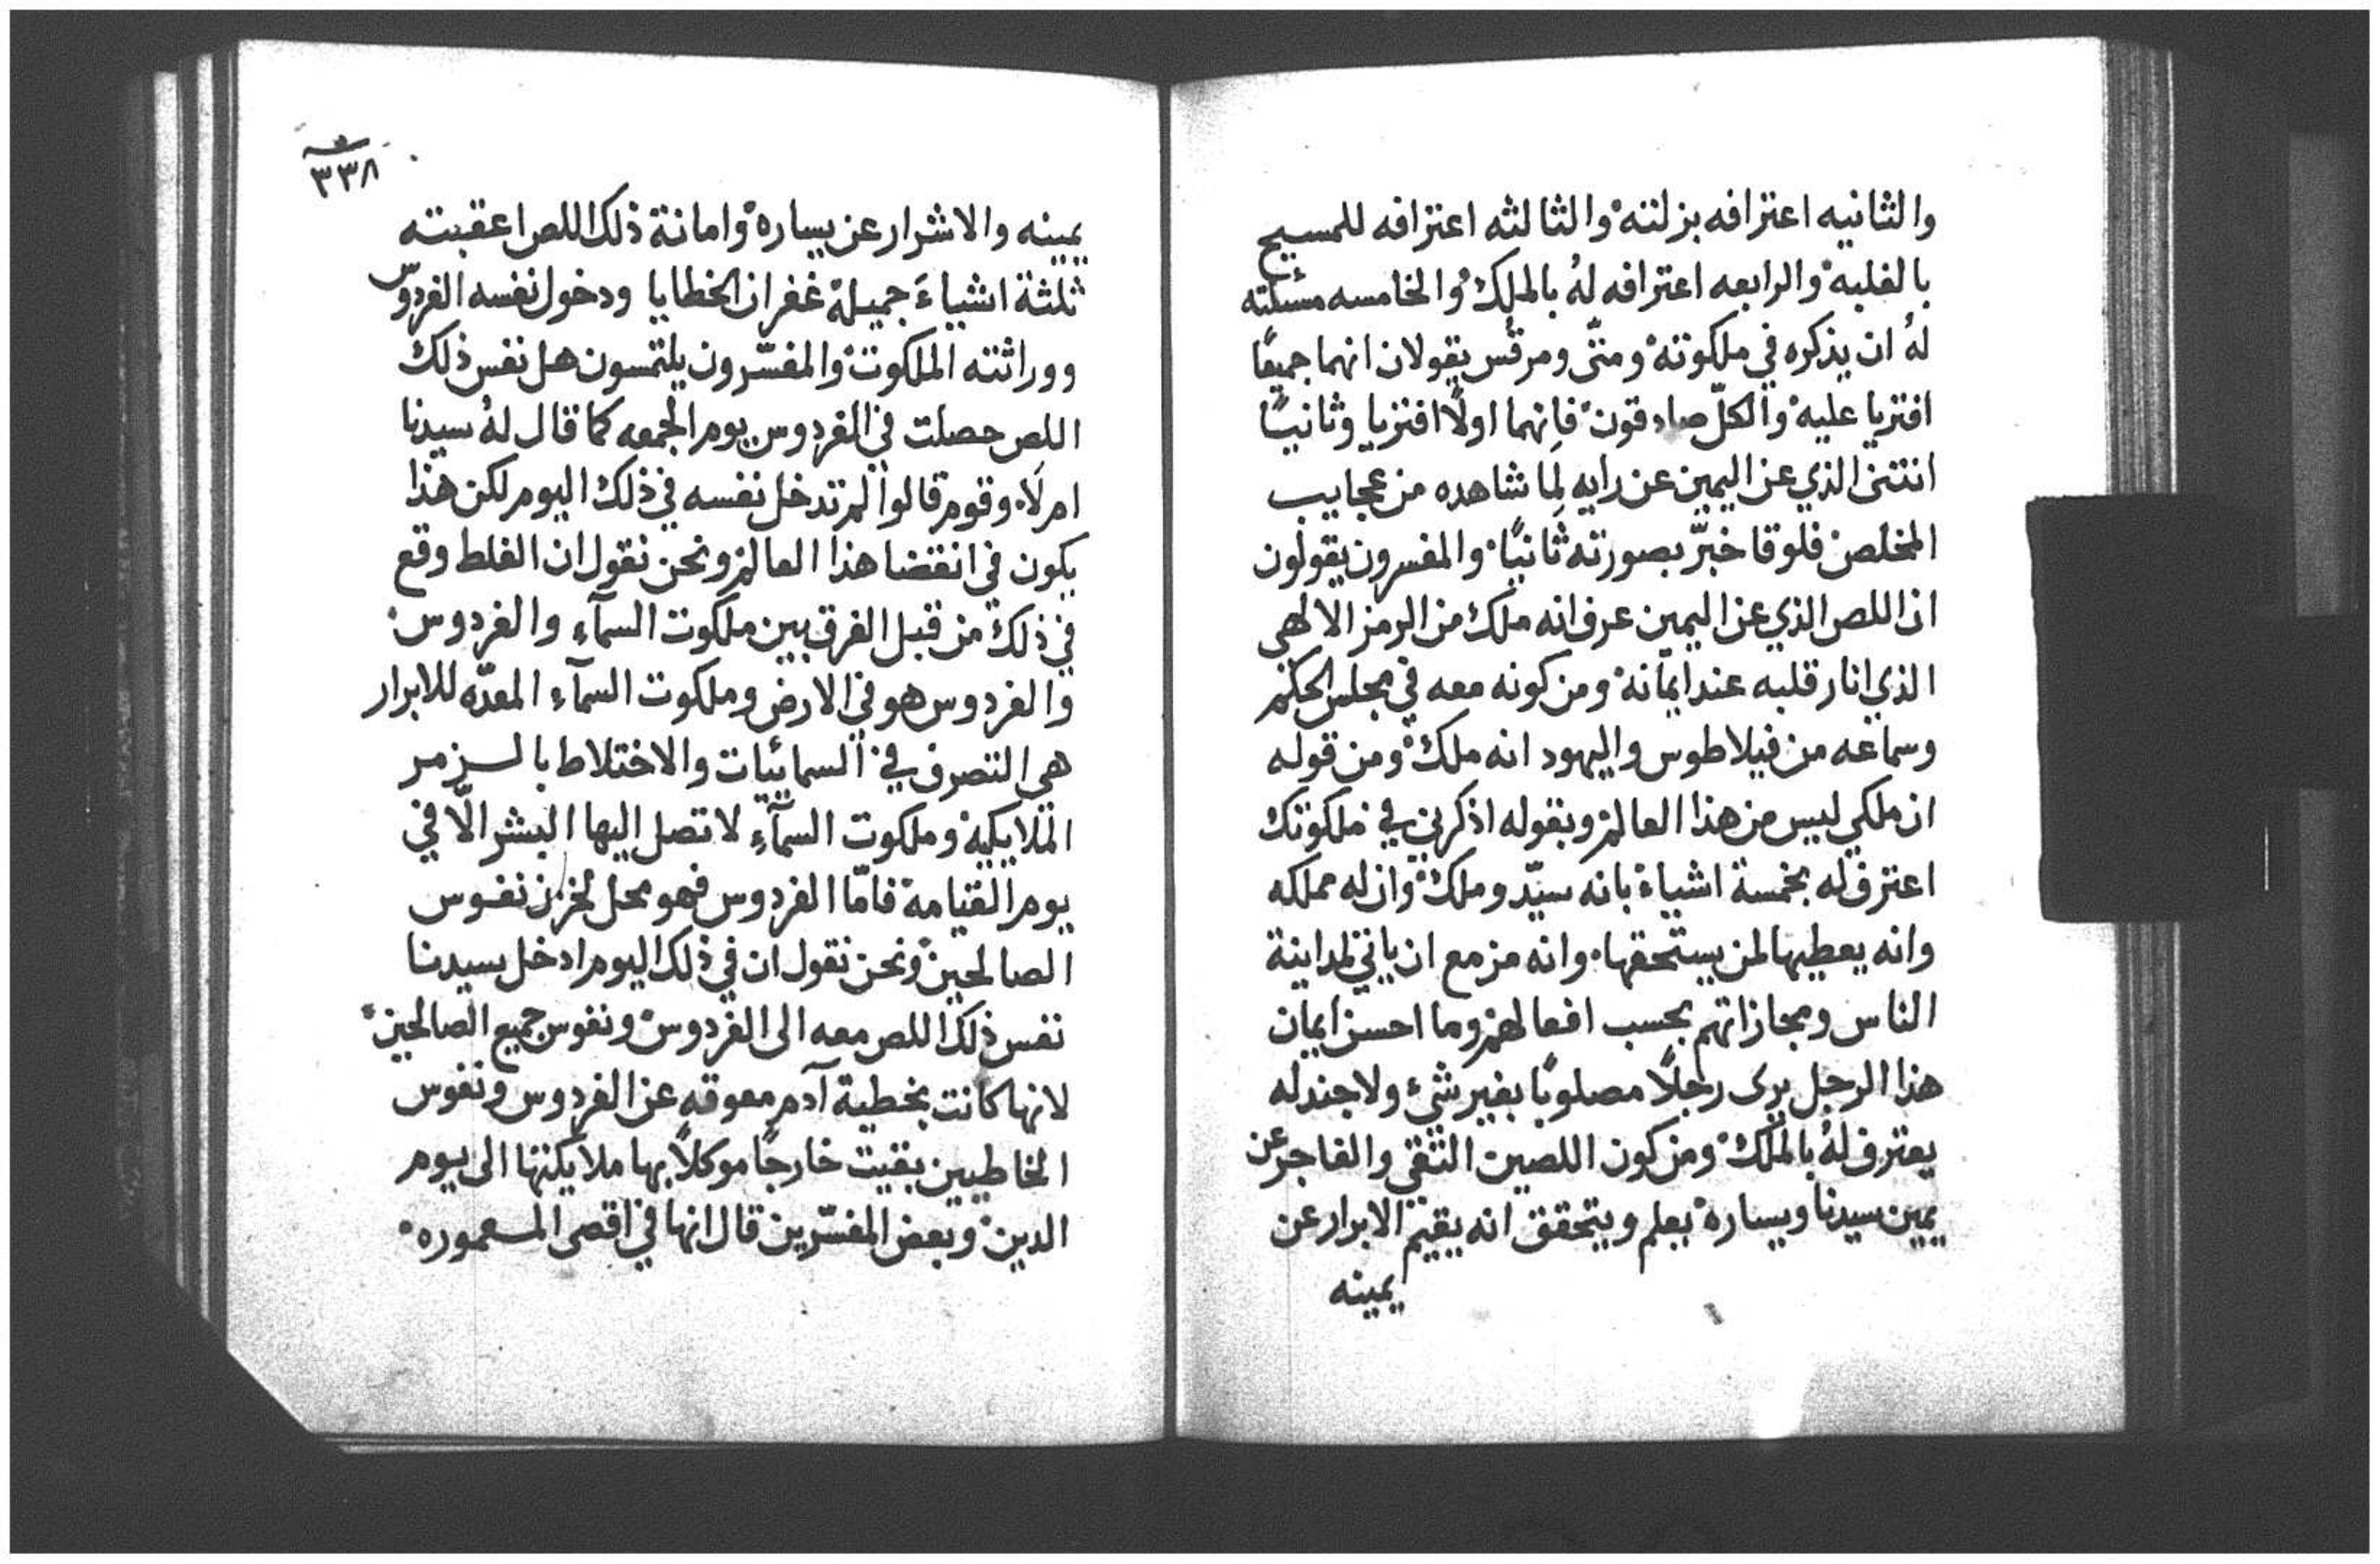 والثانيه اعترافه بزلته والثالثه اعترافه للمسيح
بالغلبه والرابعه اعترافه لهُ بالملك والخامسه مسئلته
لهُ ان يذكره في ملكوته ومتّى ومرقس يقولان انهما جميعًا
افتريا عليه والكلّ صادقون فانهما اولًا افتريا وثانيًا
انثنى الذي عن اليمين عن رايه لِما شاهده من عجايب
المخلص فلوقا خبّر بصورته ثانيًا والمفسرون يقولون
ان اللص الذي عن اليمين عرف انه ملك من الرمز الالهي
الذي انار قلبه عند ايمانه ومن كونه معه في مجلس الحكم
وسماعه من فيلاطوس واليهود انه ملك ومن قوله
ان ملكي ليس من هذا العالم وبقوله اذكرني في ملكوتك
اعترف له بخمسة اشياء بانه سيّد وملك وان له مملكه
وانه يعطيها لمن يستحقها وانه مزمع ان ياتي لمداينة
الناس ومجازاتهم بحسب افعالهم وما احسن ايمان
هذا الرجل يرى رجلًا مصلوبًا بغير شيء ولا جند له
يعترف لهُ بالملك ومن كون اللصين التقي والفاجر عن
يمين سيدنا ويساره يعلم ويتحقق انه يقيم الابرار عن
يمينه
٣٣٨
يمينه والاشرار عن يساره وامانة ذلك اللص اعقبته
ثلثة اشياءَ جميلة غفران الخطايا ودخول نفسه الفردوس
ووراثته الملكوت والمفسّرون يلتمسون هل نفس ذلك
اللص حصلت في الفردوس يوم الجمعه كما قال لهُ سيدنا
ام لَا وقوم قالوا لم تدخل نفسه في ذلك اليوم لكن هذا
يكون في انقضا هذا العالم ونحن نقول ان الغلط وقع
في ذلك من قبل الفرق بين ملكوت السمآء والفردوس
والفردوس هو في الارض وملكوت السمآء المعدّه للابرار
هي التصرف في السمائيات والاختلاط بالزمر
الملايكيه وملكوت السمآء لا تصل اليها البشر الّا في
يوم القيامه فامّا الفردوس فهو محل لخزن نفوس
الصالحين ونحن نقول ان في ذلك اليوم ادخل سيدنا
نفس ذلك اللص معه الى الفردوس ونفوس جميع الصالحين
لانها كانت بخطية آدم معوقه عن الفردوس ونفوس
الخاطيين بقيت خارجًا موكلًا بها ملايكتها الى يوم
الدين وبعض المفسّرين قال انها في اقصى المعموره